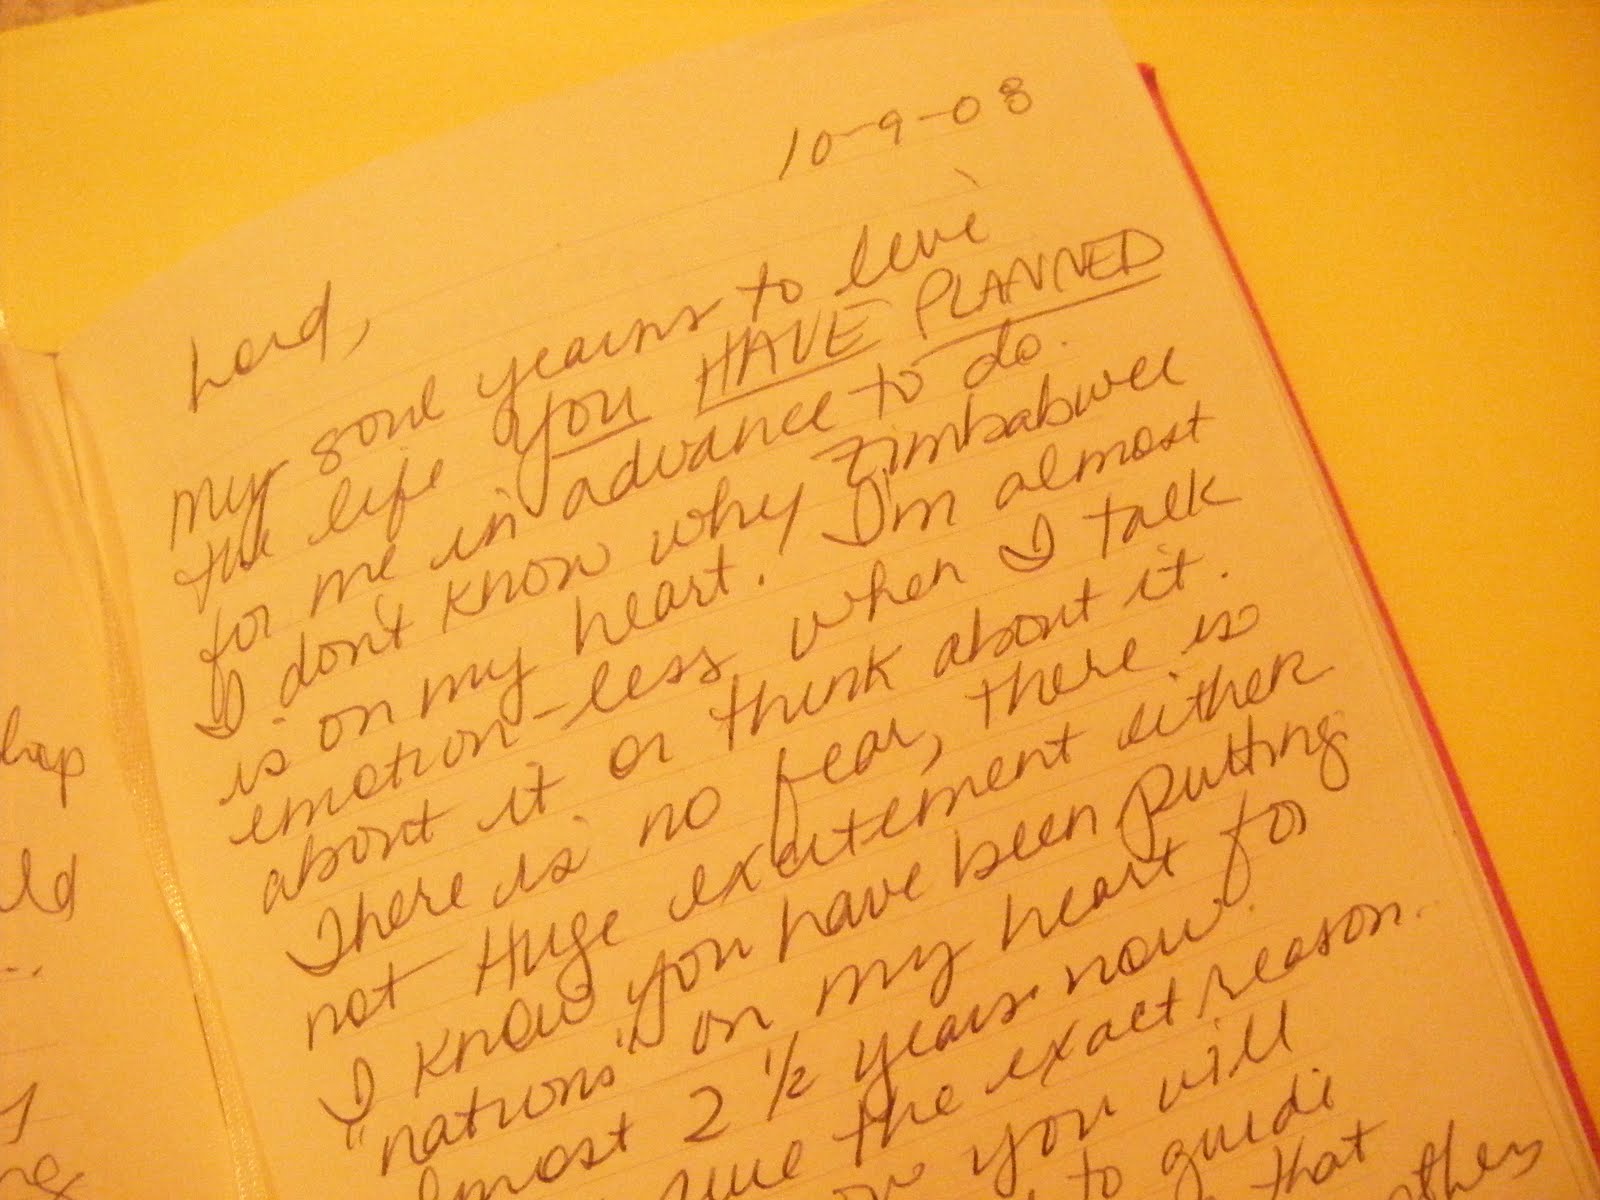 10-9-08
Lord,
my soul yearns to live
the life YOU HAVE PLANNED
for me in advance to do.
I don't know why Zimbabwee
is on my heart. I'm almost
emotion-less when I talk
about it or think about it.
There is no fear, there is
not Huge excitement either
I know you have been putting
"nations" on my heart for
almost 2 1/2 years now.
the exact reason.
you will
to guide
that